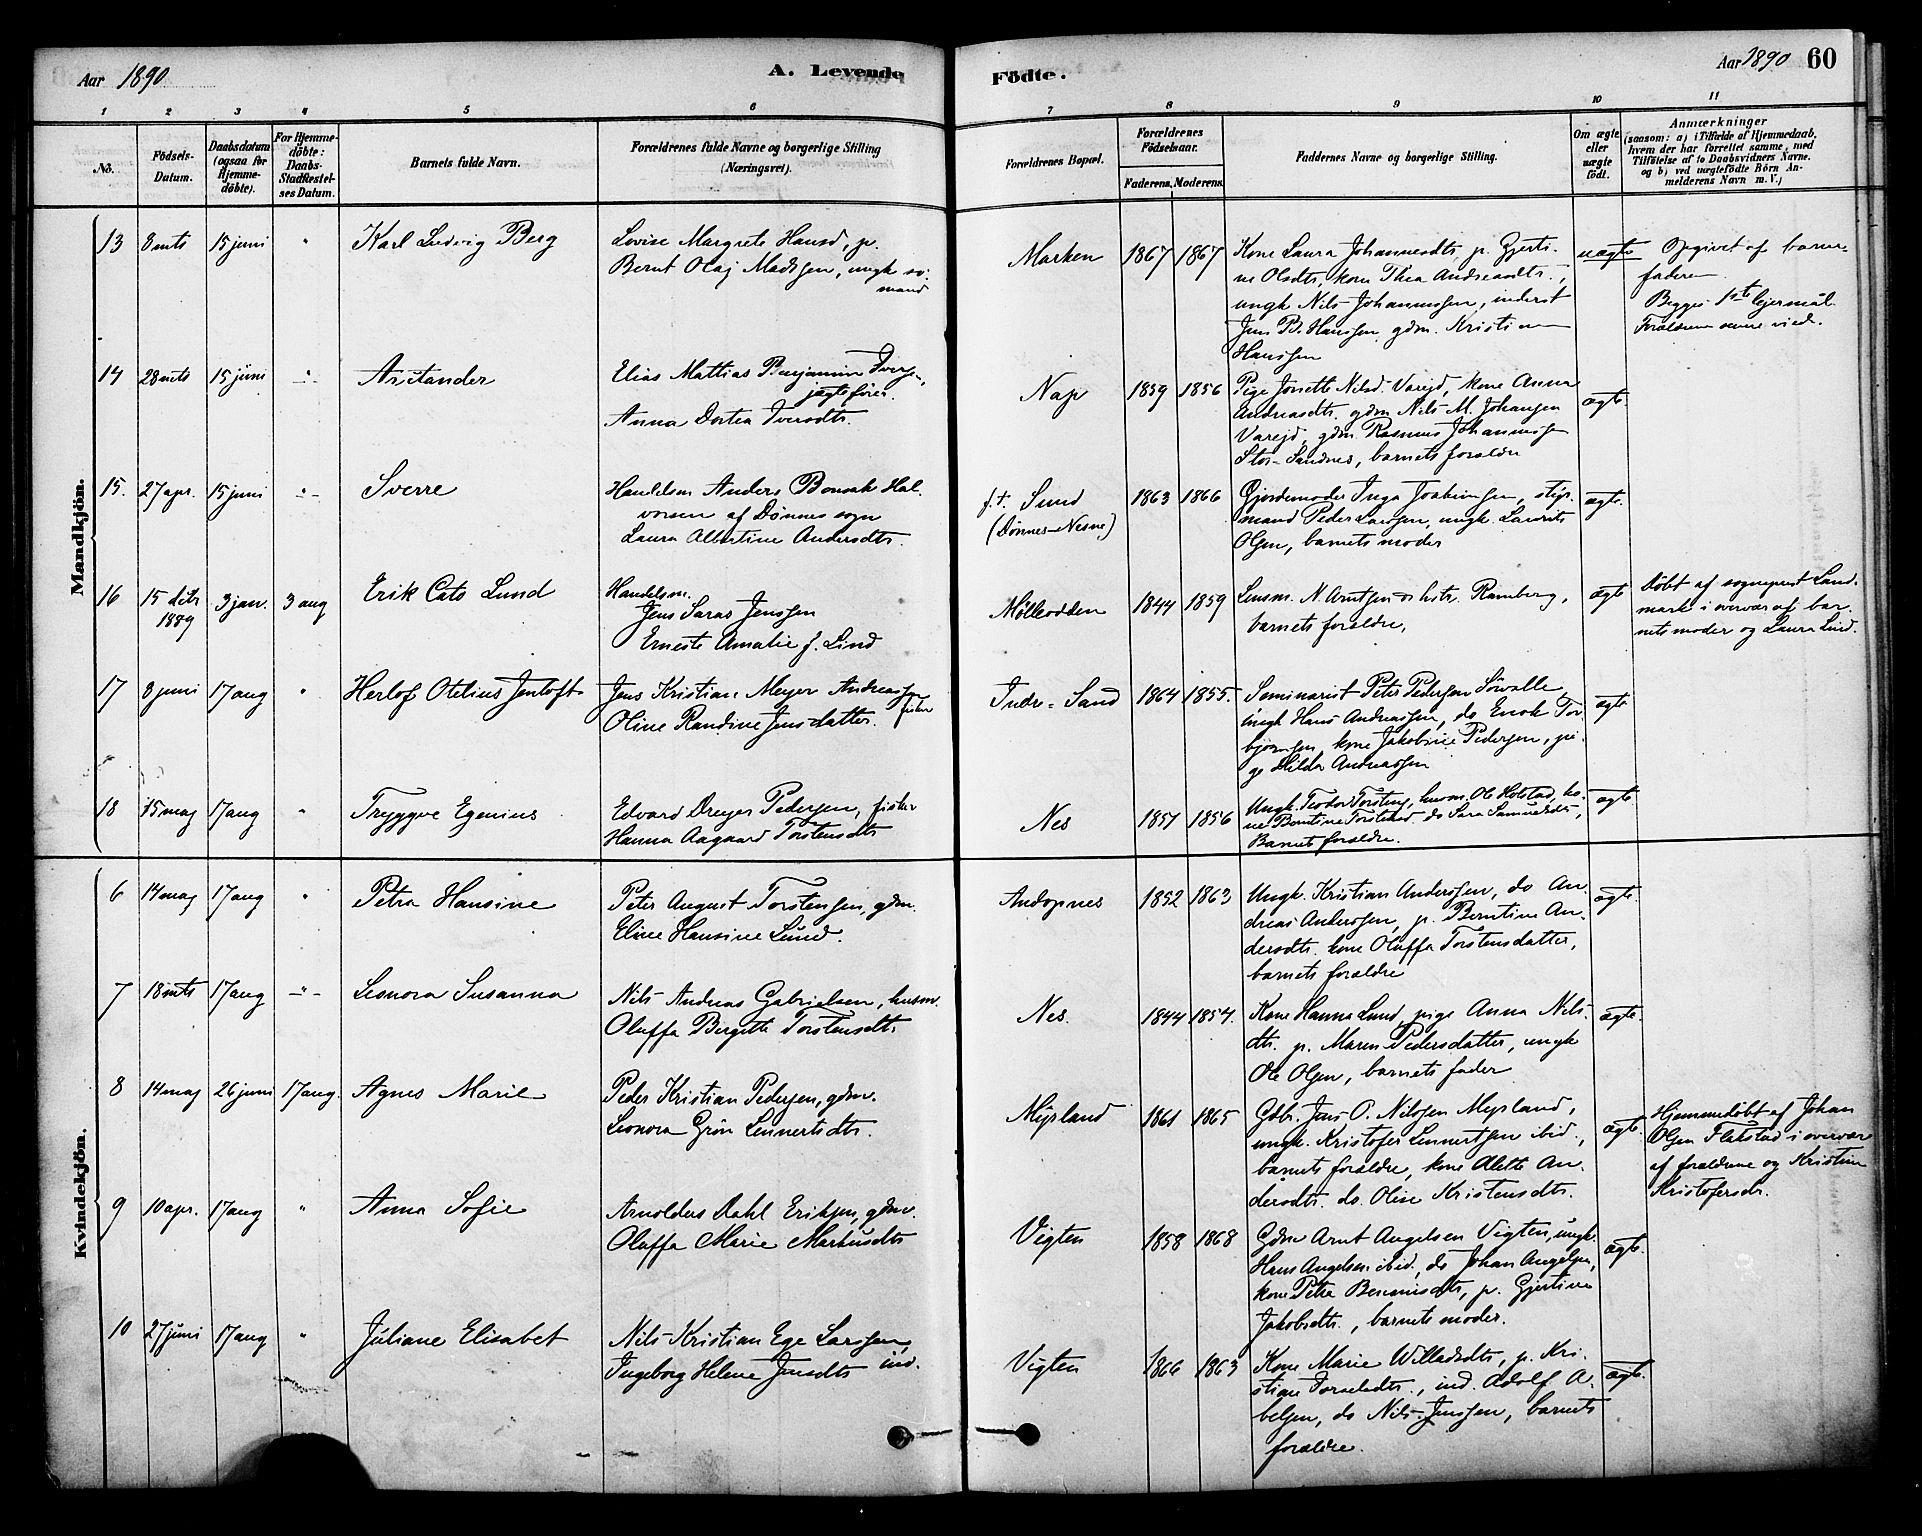 Aar 1890
A. Levende
Födte.
Aar 1890
60
1 2 3 4 5 6 7 8 9 10 11
No.
Födsels-
Datum.
Daabsdatum
(ogsaa for
Hjemme-
döbte).
For Hjemme-
döbte:
Daabs-
Stadfæstel-
ses Datum.
Barnets fulde Navn.
Forældrenes fulde Navne og borgerlige Stilling
(Næringsvei).
Forældrenes Bopæl.
Forældrenes
Födselsaar.
Faderens. Moderens.
Faddernes Navne og borgerlige Stilling.
Om ægte
eller
uægte
födt.
Anmærkninger
(saasom: a) i Tilfælde af Hjemmedaab,
hvem der har forrettet samme, med
Tilföielse af to Daabsvidners Navne.
og b) ved uægtefödte Börn An-
melderens Navn m. V.)
Mandkjön.
13 8 mts 15 juni " Karl Ludvig Berg
Lovise Margrete Hansd, p.
Bernt Olaj Madsen, ungk sö-
mand
Marken 1867 1867
Kone Laura Johannesdtr. p. Gjerti-
ne Olsdtr, kone Thea Andreasdtr.,
ungk Nils Johannssen, inderst
Jens B. Hanssen, gdm. Kristian
Hanssen
uægte
Opgivet af barne-
faderen.
Begges 1ste leiermål
Forældrene senere viede.
14 28 mts 15 juni -"- Aristander
Elias Mattias Benjamin Iversen,
jægtefører.
Anna Dortea Iversdtr.
Nap 1859 1856
Pige Jorette Nilsd. Vareid, kone Anna
Andreasdtr. gdm Nils M. Johansen
Vareid, gdm. Rasmus Johannessen
Stor-Sandnes, barnets forældre
ægte.
15. 27 apr. 15 juni -"- Sverre
Handelsm Anders Bonsak Hal-
vorsen af Dønnes sogn
Laura Albertine Andersdtr.
f. t. Sund
(Dønnes-Nesne)
1863 1866
Gjordemoder Inga Joakimsen, styr-
mand Peder Larssen, ungk. Laurits
Olsen, barnets moder
ægte.
16 15 dcbr 1889 3 jan. 3 aug Erik Cato Lund
Handelsm.
Jens Saras Jenssen
Erneste Amalie f. Lind
Mølleodden 1844 1859
Lensm. N Arntsen og hstr. Ramberg,
barnets forældre,
ægte
Døbt af sogneprest Land-
mark i overvær af bar-
nets moder og Laura Lind.
17 8 juni 17 aug " Herlof Otelius Jentoft
Jens Kristian Meyer Andreassen
fisker
Oline Randine Jensdatter.
Indre-Sand 1864 1855.
Seminarist Peter Pedersen Sörvalle,
ungk Hans Andreassen, do Enok Tor-
bjørnsen, kone Jakobine Pedersen, pi-
ge Hilda Andreassen
ægte
18 15 maj 17 aug " Tryggve Egenius
Edvard Dreyer Pedersen, fisker
Hanna Aagaard Torstensdtr
Nes 1851 1856
Ungk. Teodor Torstens, husm. Ole Holstad, ko-
ne Berntine Torstensd do Sara Samuelsdtr,
Barnets forældre.
ægte
Kvindekjön.
6 14 maj 17 aug " Petra Hansine
Peter August Torstensen, gdm.
Eline Hansine Lund.
Andopnes 1852 1863
Ungk. Kristian Anderssen, do An-
dreas Anderssen, p. Berntine An-
dersdtr. kone Oluffa Torstensdatter,
barnets forældre
ægte.
7 18 mts 17 aug -"- Leonora Susanna
Nils Andreas Gabrielsen, husm.
Oluffa Bergitte Torstensdtr.
Nes. 1844 1854.
Kone Hanna Lund, pige Anna Nils-
dtr. p. Maren Pedersdatter, ungk
Ole Olsen, barnets fader
ægte.
8 14 maj 26 juni 17 aug. Agnes Marie
Peder Kristian Pedersen, gdm.
Leonora Grön Lennertsdtr.
Mysland 1861 1865
Gdbr. Jens O. Nilssen Mysland,
ungk. Kristofer Lennertsen ibid.,
barnets forældre, kone Alette An-
dersdtr. do. Oline Kristensdtr.
ægte.
Hjemmedøbt af Johan
Olsen Flakstad i overvær
af forældrene og Kristine
Kristofersdr.
9 10 apr. 17 aug " Anna Sofie
Arnoldus Dahl Eriksen, gdm.
Oluffa Marie Markusdtr
Vigten 1858 1868
Gdm Arnt Angelsen Vigten, ungk.
Hans Angelsen ibid., do Johan Angelsen,
kone Petra Benonisdtr, p. Gjertine
Jakobsdtr., barnets moder.
ægte.
10 27 juni 17 aug " Juliane Elisabet
Nils Kristian Ege Larssen,
ind.
Ingeborg Helene Jensdtr
Vigten 1866 1863
Kone Marie Willadsdtr, p. Kri-
stiane Torsteladtr., ind. Adolf A-
belsen, do Nils Jenssen, barnets
forældre.
ægte.